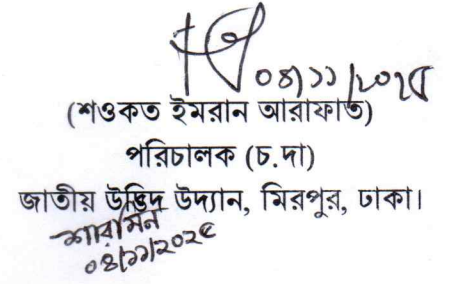 ০৪/১১/২০২৫
(শওকত ইমরান আরাফাত)
পরিচালক (চ.দা)
জাতীয় উদ্ভিদ উদ্যান, মিরপুর, ঢাকা।
শারমিন
০৪/১১/২০২৫